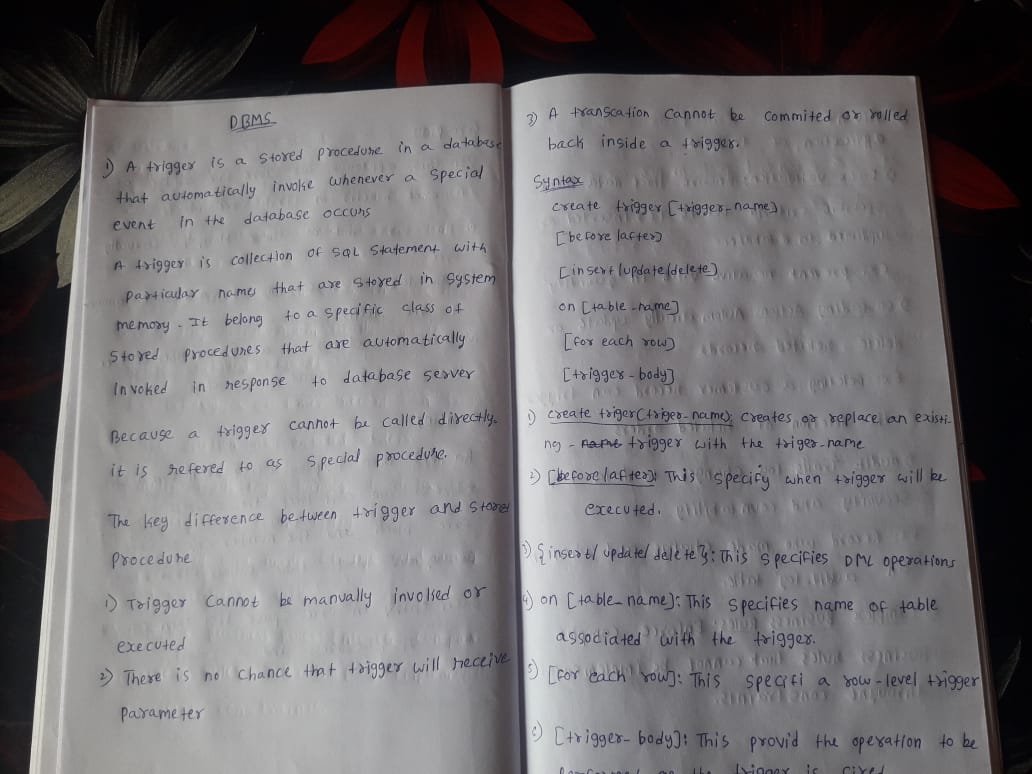 DBMS
1) A trigger is a stored procedure in a database
that automatically invoke whenever a special
event in the database occurs
A trigger is collection of SQL Statement with
particular names that are stored in system
memory. It belong to a specific class of
Stored procedures that are automatically
Invoked in response to database server
Because a trigger cannot be called directly.
it is refered to as special procedure.
The key difference between trigger and stored
Procedure
1) Trigger cannot be manually involsed or
executed
2) There is no chance that trigger will receive
Parameter
3) A transcation cannot be commited or rolled
back inside a trigger.
Syntax
create trigger [trigger-name]
[before/after]
[insert/update/delete]
on [table-name]
[for each row]
[trigger-body]
1) create triger(triger-name): creates or replace an existi-
ng - name trigger with the triger-name
2) [before/after]: This specify when trigger will be
executed.
3) {insert/update/delete}: This specifies DML operations
4) on [table-name]: This specifies name of table
assodiated with the trigger.
5) [for each row]: This specifi a row-level trigger
6) [trigger-body]: This provid the operation to be
trigger is fired